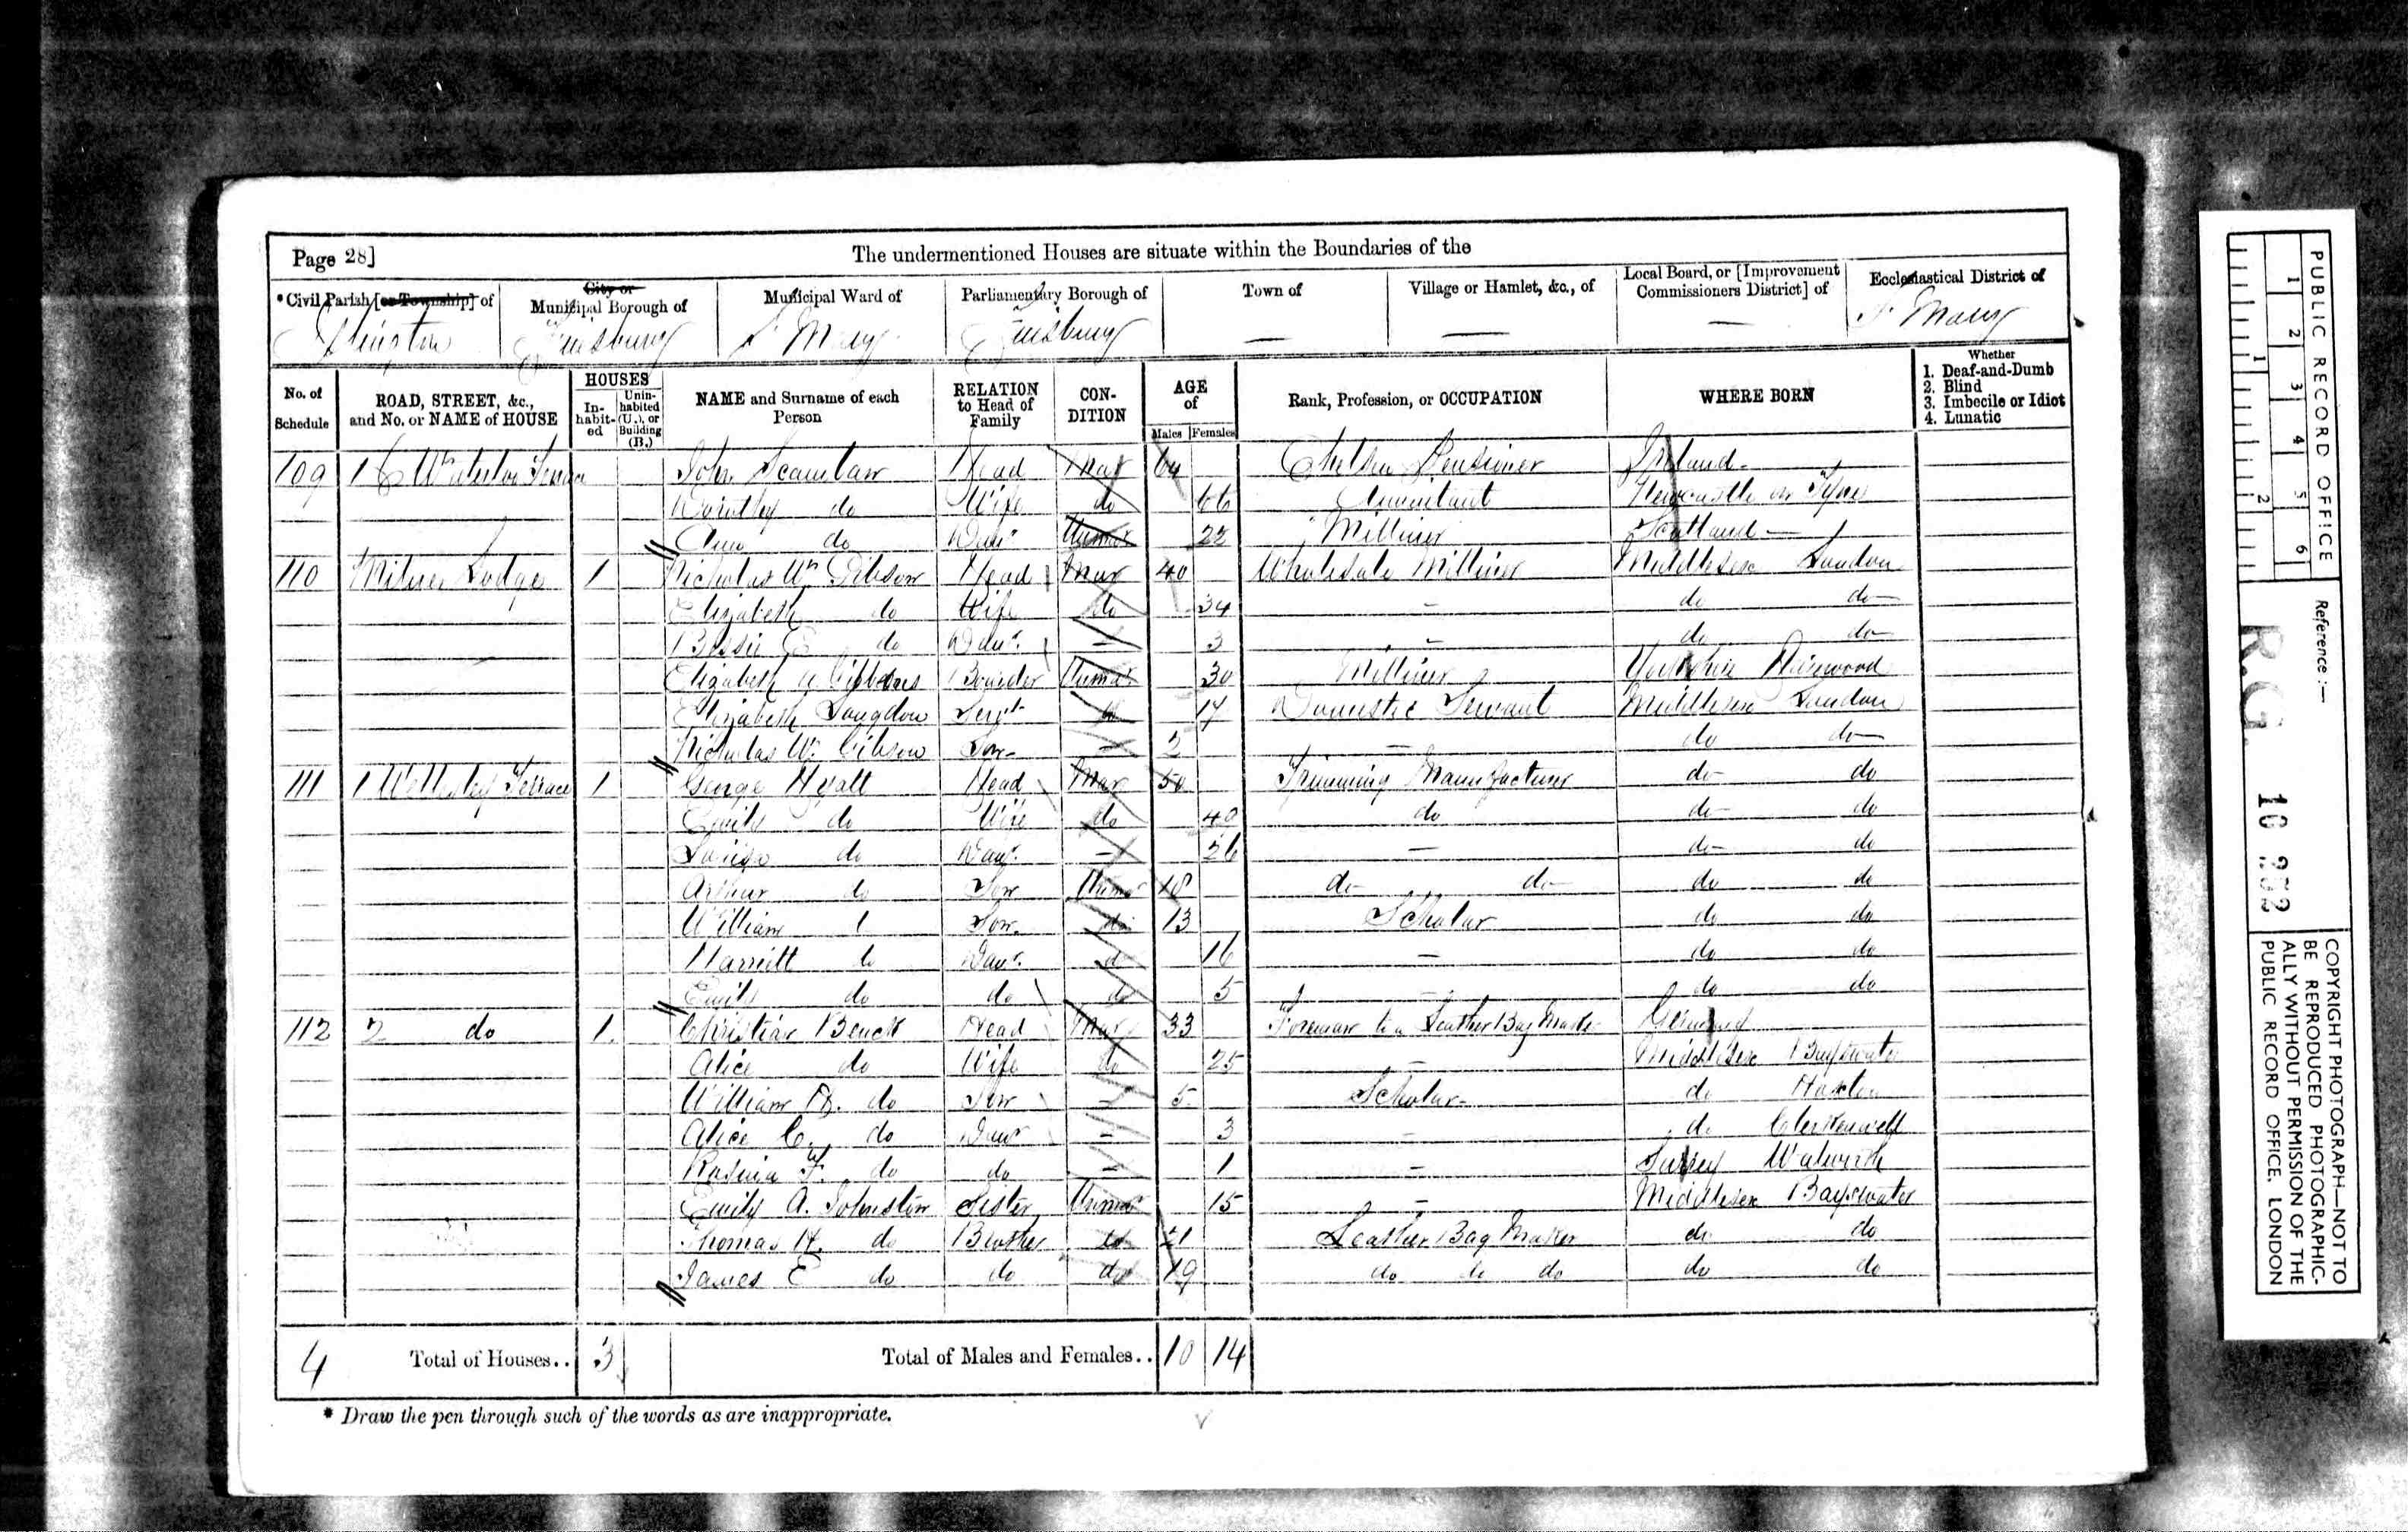 Page 28] The undermentioned Houses are situate within the Boundaries of the
*Civil Parish [or Township] of City or Municipal Borough of Municipal Ward of Parliamentary Borough of Town of Village or Hamlet, &c., of Local Board, or [Improvement Commissioners District] of Ecclesiastical District of
Islington Finsbury St Mary Finsbury — — — St Mary
No. of Schedule ROAD, STREET, &c., and No. or NAME of HOUSE HOUSES Inhabited Uninhabited (U.), or Building (B.) NAME and Surname of each Person RELATION to Head of Family CONDITION AGE of Males Females Rank, Profession, or OCCUPATION WHERE BORN Whether 1. Deaf-and-Dumb 2. Blind 3. Imbecile or Idiot 4. Lunatic
109 1 Waterloo Terrace John Scanlan Head Mar 64 Chelsea Pensioner Ireland
Dorothy do Wife do 66 Newcastle on Tyne
Ann do Daur 22 Milliner Scotland —
110 Milner Lodge 1 Nicholas Wm Gibson Head Mar 40 Wholesale Milliner Middlesex London
Elizabeth do Wife do 34 — do do
Bessie E do Daur. — 3 — do do
Elizabeth A Gibbons Boarder Unmar 30 Milliner Yorkshire
Elizabeth Langdon Servt do 17 Domestic Servant Middlesex London
Nicholas W. Gibson Son — 2 — do do
111 1 Wellesley Terrace 1 George Hyatt Head Mar 50 Trimming Manufacturer do do
Emily do Wife do 40 do do do
Louisa do Daur. — 26 — do do
Arthur do Son Unmar 18 do do do do
William Son do 13 Scholar do do
Harriett do Daur. do 16 — do do
Emily do do do 5 — do do
112 2 do 1. Christian Benck Head Mar 33 Foreman to a Leather Bag Maker Germany
Alice do Wife do 25 — Middlesex Bayswater
William H. do Son — 5 Scholar do Hoxton
Alice C. do Daur — 3 — do Clerkenwell
Rosina F. do do — 1 — Surrey Walworth
Emily A. Johnston Sister Unmar 15 — Middlesex Bayswater
Thomas H. do Brother do 21 Leather Bag Maker do do
James E do do do 19 do do do do do
4 Total of Houses.. 3 Total of Males and Females.. 10 14
* Draw the pen through such of the words as are inappropriate.
PUBLIC RECORD OFFICE
1 2 3 4 5 6
1 2
Reference :—
R.G. 10
COPYRIGHT PHOTOGRAPH—NOT TO
BE REPRODUCED PHOTOGRAPHIC-
ALLY WITHOUT PERMISSION OF THE
PUBLIC RECORD OFFICE, LONDON